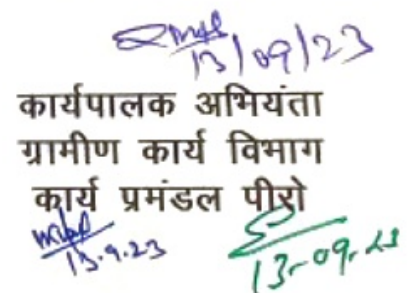 13/09/23
कार्यपालक अभियंता
ग्रामीण कार्य विभाग
कार्य प्रमंडल पीरो
13.9.23
13-09-23